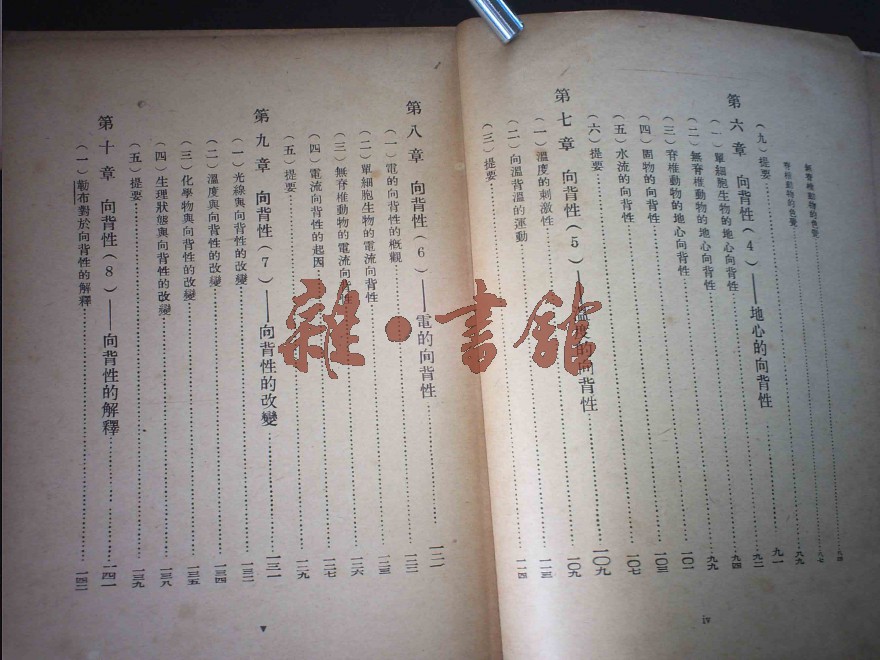 無脊椎動物的色變……八四
脊椎動物的色變……八七
(九)提要……八九
第六章 向背性(4)——地心的向背性……九一
(一)單細胞生物的地心向背性……九二
(二)無脊椎動物的地心向背性……九四
(三)脊椎動物的地心向背性……九九
(四)固物的向背性……一〇一
(五)水流的向背性……一〇三
(六)提要……一〇七
第七章 向背性(5)——溫度的向背性……一〇九
(一)溫度的刺激性……一〇九
(二)向溫背溫的運動……一一三
(三)提要……一一四
iv
第八章 向背性(6)——電的向背性……一二一
(一)電的向背性的概觀……一二二
(二)單細胞生物的電流向背性……一二三
(三)無脊椎動物的電流向背性……一二六
(四)電流向背性的起因……一二七
(五)提要……一二九
第九章 向背性(7)——向背性的改變……一三一
(一)光線與向背性的改變……一三二
(二)溫度與向背性的改變……一三四
(三)化學物與向背性的改變……一三五
(四)生理狀態與向背性的改變……一三八
(五)提要……一三九
第十章 向背性(8)——向背性的解釋……一四一
(一)勒布對於向背性的解釋……一四二
v
雜·書館